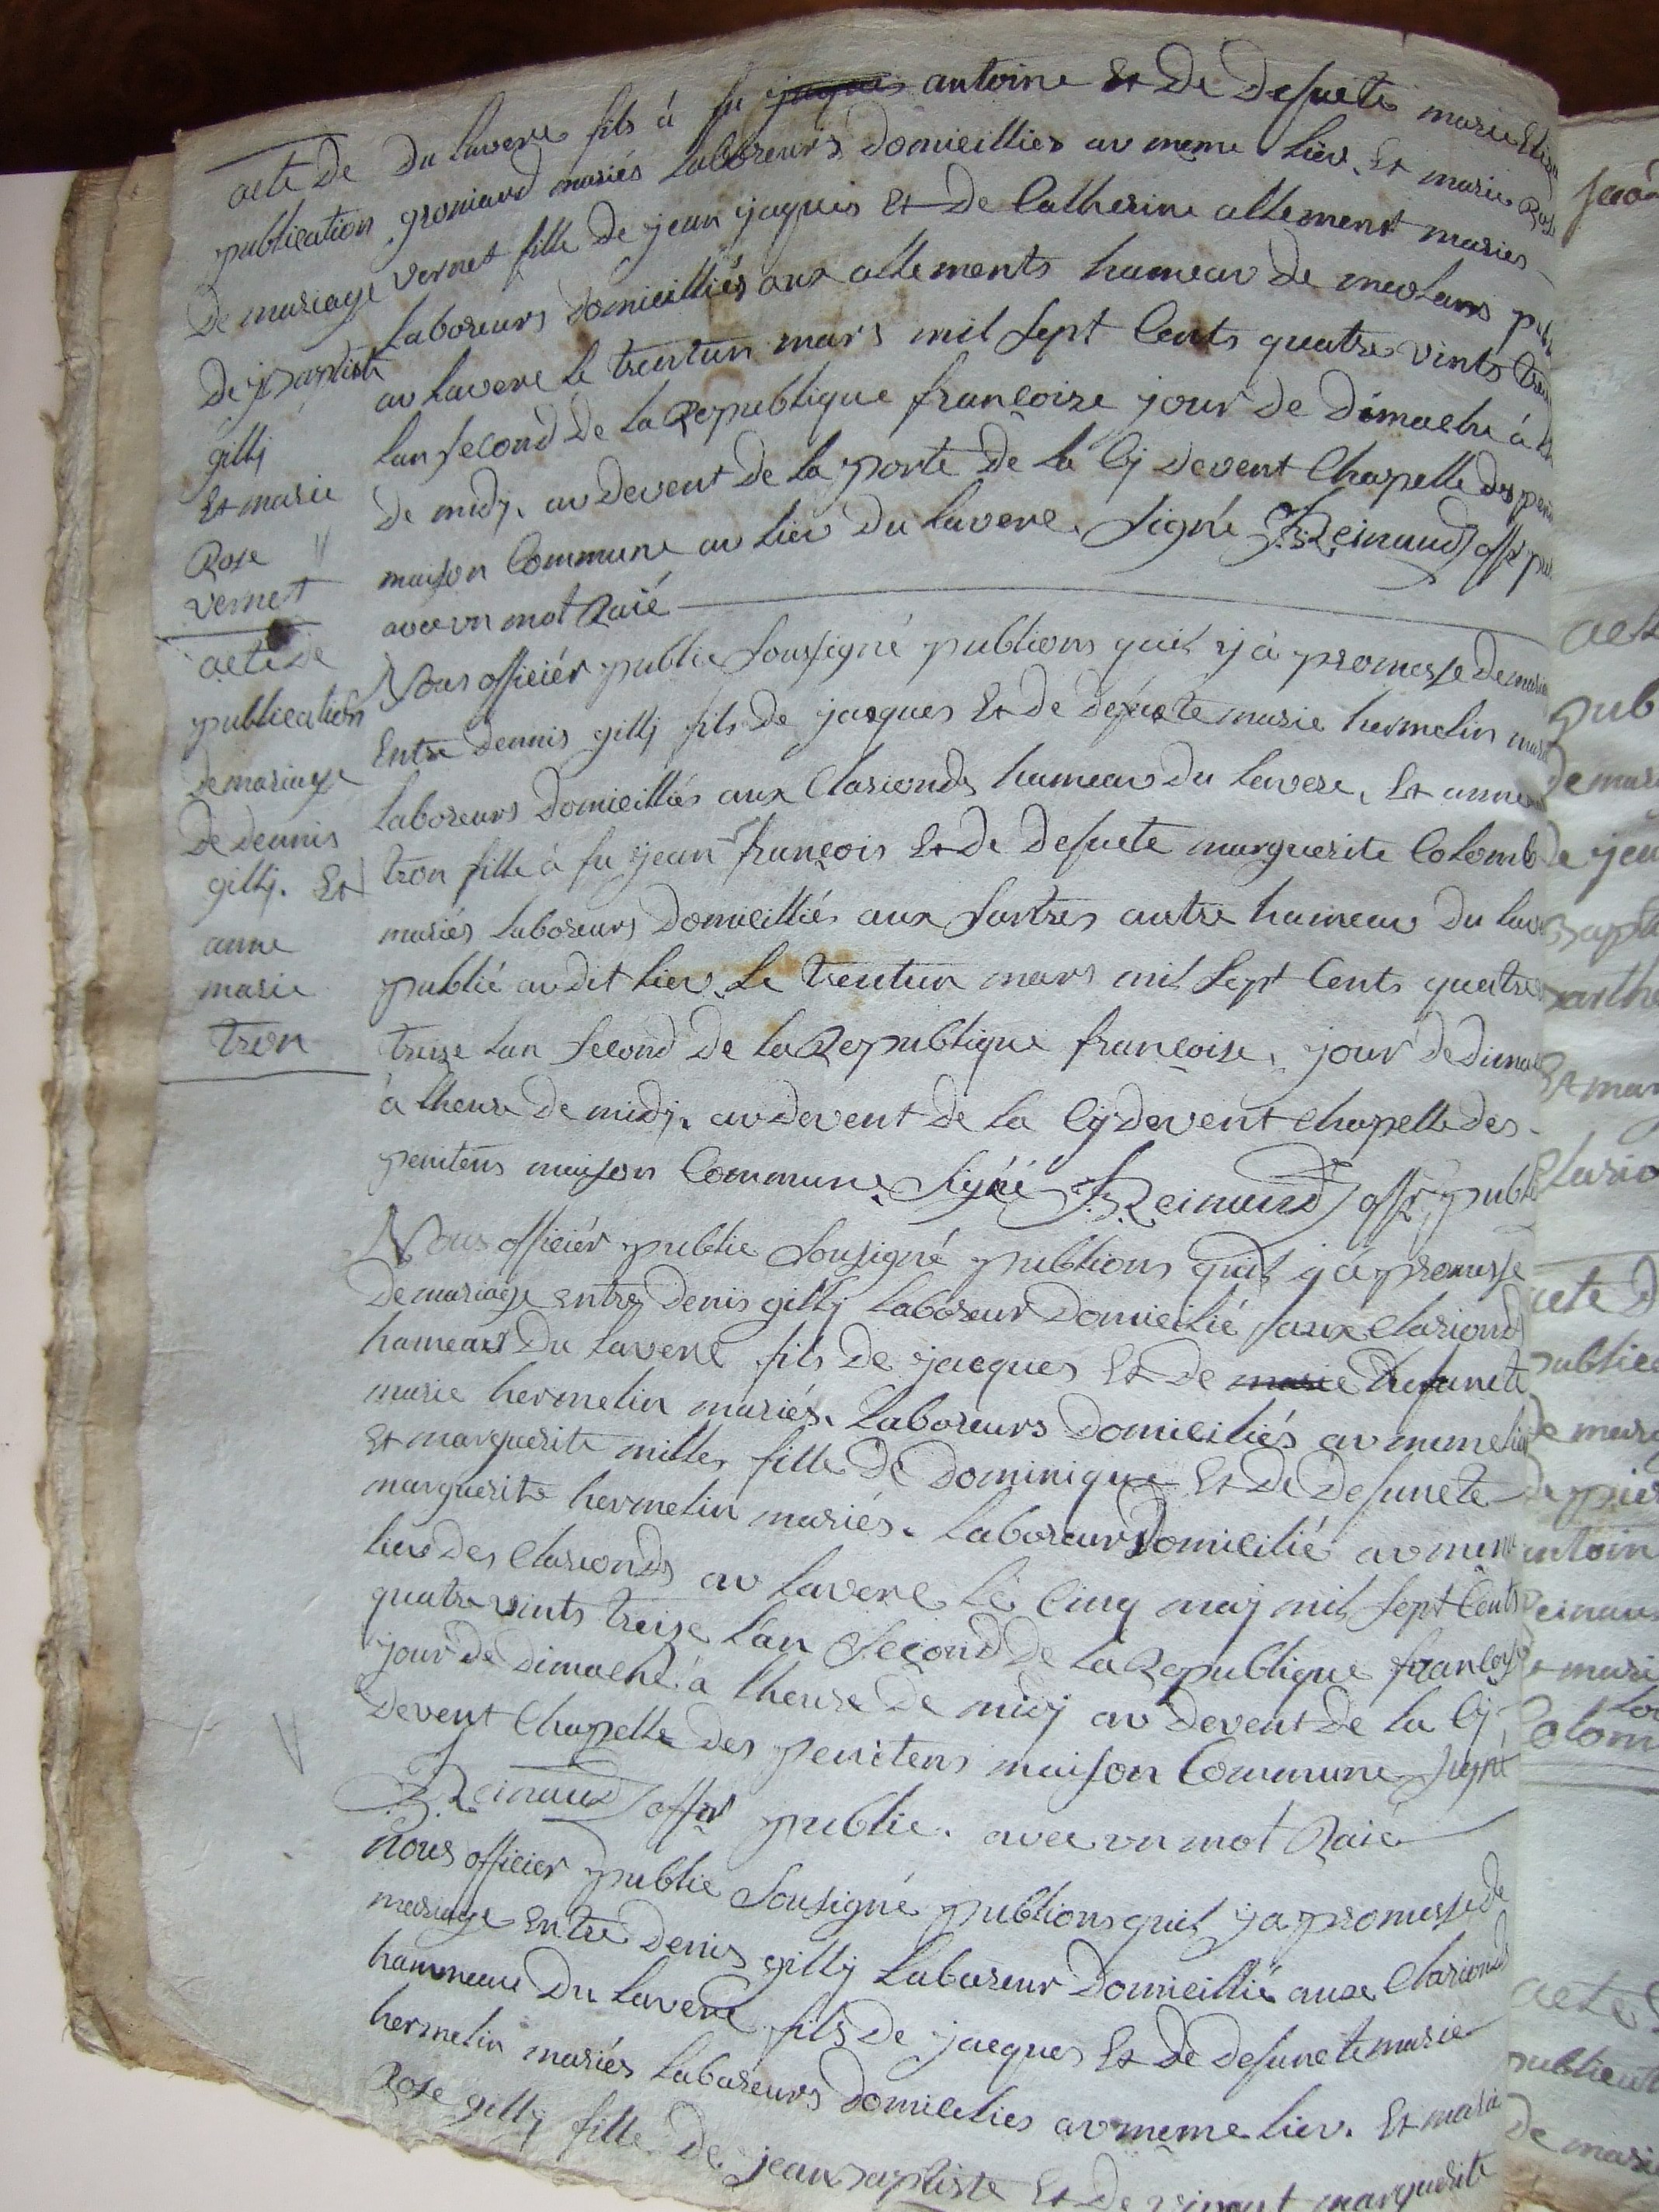 acte de
publication
de mariage
de j baptiste
gillj
Et marie
Rose
vernet
du laverc fils à fu antoine Et de defucte marie
groniard mariés laboreurs domicilliés au meme lieu. Et marie Rose
vernet fille de jean jaques Et de Catherine allement mariés
laboreurs domicilliés aux allements hameau de meolans
au laverc le trentun mars mil sept Cents quatre vints
lan second de la Republique françoize jour de dimache à
de midj. au devent de la porte de la Cj devent Chapelle des
maison Commune au lieu du laverc. signé J. B. Reinaud offr
avec un mot Raié
acte de
publication
de mariage
de dennis
gillj. Et
anne
marie
tron
Nous officiér public soussigné publions quil yà promesse de
Entre dennis gillj fils de jacques Et de defucte marie hermelin
laboreurs domicilliés aux Clarionds hameau du laverc. Et anne
tron fille à fu jean françois Et de defucte marguerite Colomb
mariés laboreurs domicilliés aux sartres autre hameau du
publié au dit lieu. le trentun mars mil sept Cents quatre
treize lan second de la Republique françoise. jour de
à lheure de midj. au devent de la Cj devent Chapelle des
penitens maison Commune signé J. B. Reinaud offr publ
Nous officiér public sousigné publions quil yà promesse
de mariage entre denis gillj laboreur domicilié aux Clarionds
hameau du laverc fils de jacques Et de marie defuncte
marie hermelin mariés. laboreurs domiciliés au meme lieu
Et marguerite fille de dominique Et de defuncte
marguerite hermelin mariés. laboreurs domicilié au meme
lieu des Clarionds au laverc le Cinq maj mil sept Cents
quatre vints treize l'an second de la Republique
jour de dimache à lheure de midj au devent de la Cj
devent Chapelle des penitens maison Commune signé
J. B. Reinaud offr public. avec un mot Raié
nous officier public sousigné publions quil ya promesse de
mariage entre denis gillj laboureur domicillié aux Clarionds
hammeau du laverc fils de jacques Et de defuncte marie
hermelin mariés laboureurs domiciliés au meme lieu. Et marie
Rose gillj fille de jean baptiste Et de marguerite